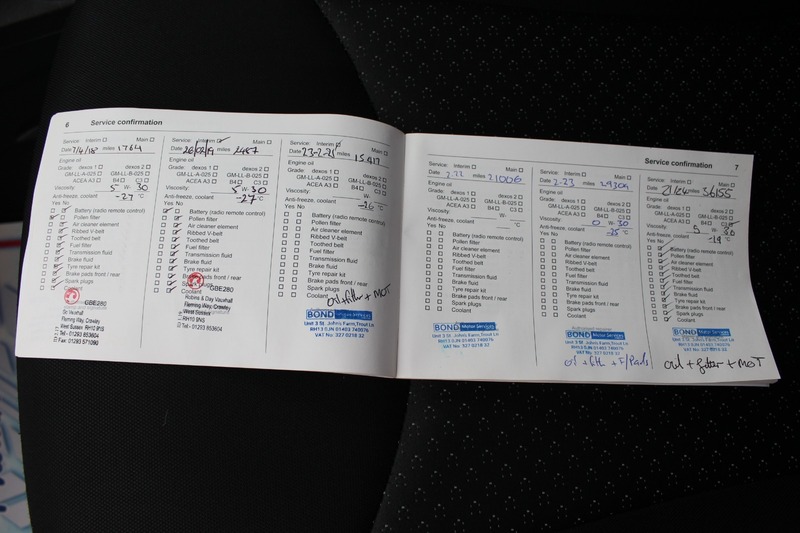 6 Service confirmation
Service: Interim Main
Date 7/4/18 miles 1764
Engine oil
Grade: dexos 1 dexos 2
GM-LL-A-025 GM-LL-B-025
ACEA A3 B4 C3
Viscosity: 5 W- 30
Anti-freeze, coolant -27 °C
Yes No
Battery (radio remote control)
Pollen filter
Air cleaner element
Ribbed V-belt
Toothed belt
Fuel filter
Transmission fluid
Brake fluid
Tyre repair kit
Brake pads front / rear
Spark plugs
GBE280
Fleming Way, Crawley
West Sussex RH10 9NS
Tel - 01293 853604
Fax: 01293 571090
Service: Interim Main
Date 26/02/19 miles 2487
Engine oil
Grade: dexos 1 dexos 2
GM-LL-A-025 GM-LL-B-025
ACEA A3 B4 C3
Viscosity: 5 W- 30
Anti-freeze, coolant -27 °C
Yes No
Battery (radio remote control)
Pollen filter
Air cleaner element
Ribbed V-belt
Toothed belt
Fuel filter
Transmission fluid
Brake fluid
Tyre repair kit
pads front / rear
Coolant
GBE280
Robins & Day Vauxhall
Fleming Way, Crawley
West Sussex
RH10 9NS
Tel: 01293 853604
Service: Interim Main
Date miles 15,917
Engine oil
Grade: dexos 1 dexos 2
GM-LL-A-025 GM-LL-B-025
ACEA A3 B4 C3
Viscosity: W-
Anti-freeze, coolant °C
Yes No
Battery (radio remote control)
Pollen filter
Air cleaner element
Ribbed V-belt
Toothed belt
Fuel filter
Transmission fluid
Brake fluid
Tyre repair kit
Brake pads front / rear
Spark plugs
Coolant
oil + filter + MOT
BOND Motor Services
Unit 3 St. Johns Farm, Trout Ln
RH13 0JN 01403 740076
VAT No: 327 0218 32
Service confirmation 7
Service: Interim Main
Date 2.22 miles 21006
Engine oil
Grade: dexos 1 dexos 2
GM-LL-A-025 GM-LL-B-025
ACEA A3 B4 C3
Viscosity: W-
Anti-freeze, coolant °C
Yes No
Battery (radio remote control)
Pollen filter
Air cleaner element
Ribbed V-belt
Toothed belt
Fuel filter
Transmission fluid
Brake fluid
Tyre repair kit
Brake pads front / rear
Spark plugs
Coolant
BOND Motor Services
Unit 3 St. Johns Farm, Trout Ln
RH13 0JN 01403 740076
VAT No: 327 0218 32
Service: Interim Main
Date 2.23 miles 29304
Engine oil
Grade: dexos 1 dexos 2
GM-LL-A-025 GM-LL-B-025
ACEA A3 B4 C3
Viscosity: 0 W- 30
Anti-freeze, coolant °C
Yes No
Battery (radio remote control)
Pollen filter
Air cleaner element
Ribbed V-belt
Toothed belt
Fuel filter
Transmission fluid
Brake fluid
Tyre repair kit
Brake pads front / rear
Spark plugs
Coolant
BOND Motor Services
Unit 3 St. Johns Farm, Trout Ln
RH13 0JN 01403 740076
VAT No: 327 0218 32
oil + filt + F/Pads
Service: Interim Main
Date miles 36155
Engine oil
Grade: dexos 1 dexos 2
GM-LL-A-025 GM-LL-B-025
ACEA A3 B4 C3
Viscosity: 5 W- 30
Anti-freeze, coolant -19 °C
Yes No
Battery (radio remote control)
Pollen filter
Air cleaner element
Ribbed V-belt
Toothed belt
Fuel filter
Transmission fluid
Brake fluid
Tyre repair kit
Brake pads front / rear
Spark plugs
Coolant
BOND Motor Services
Unit 3 St. Johns Farm, Trout Ln
RH13 0JN 01403 740076
VAT No: 327 0218 32
oil + filter + MOT